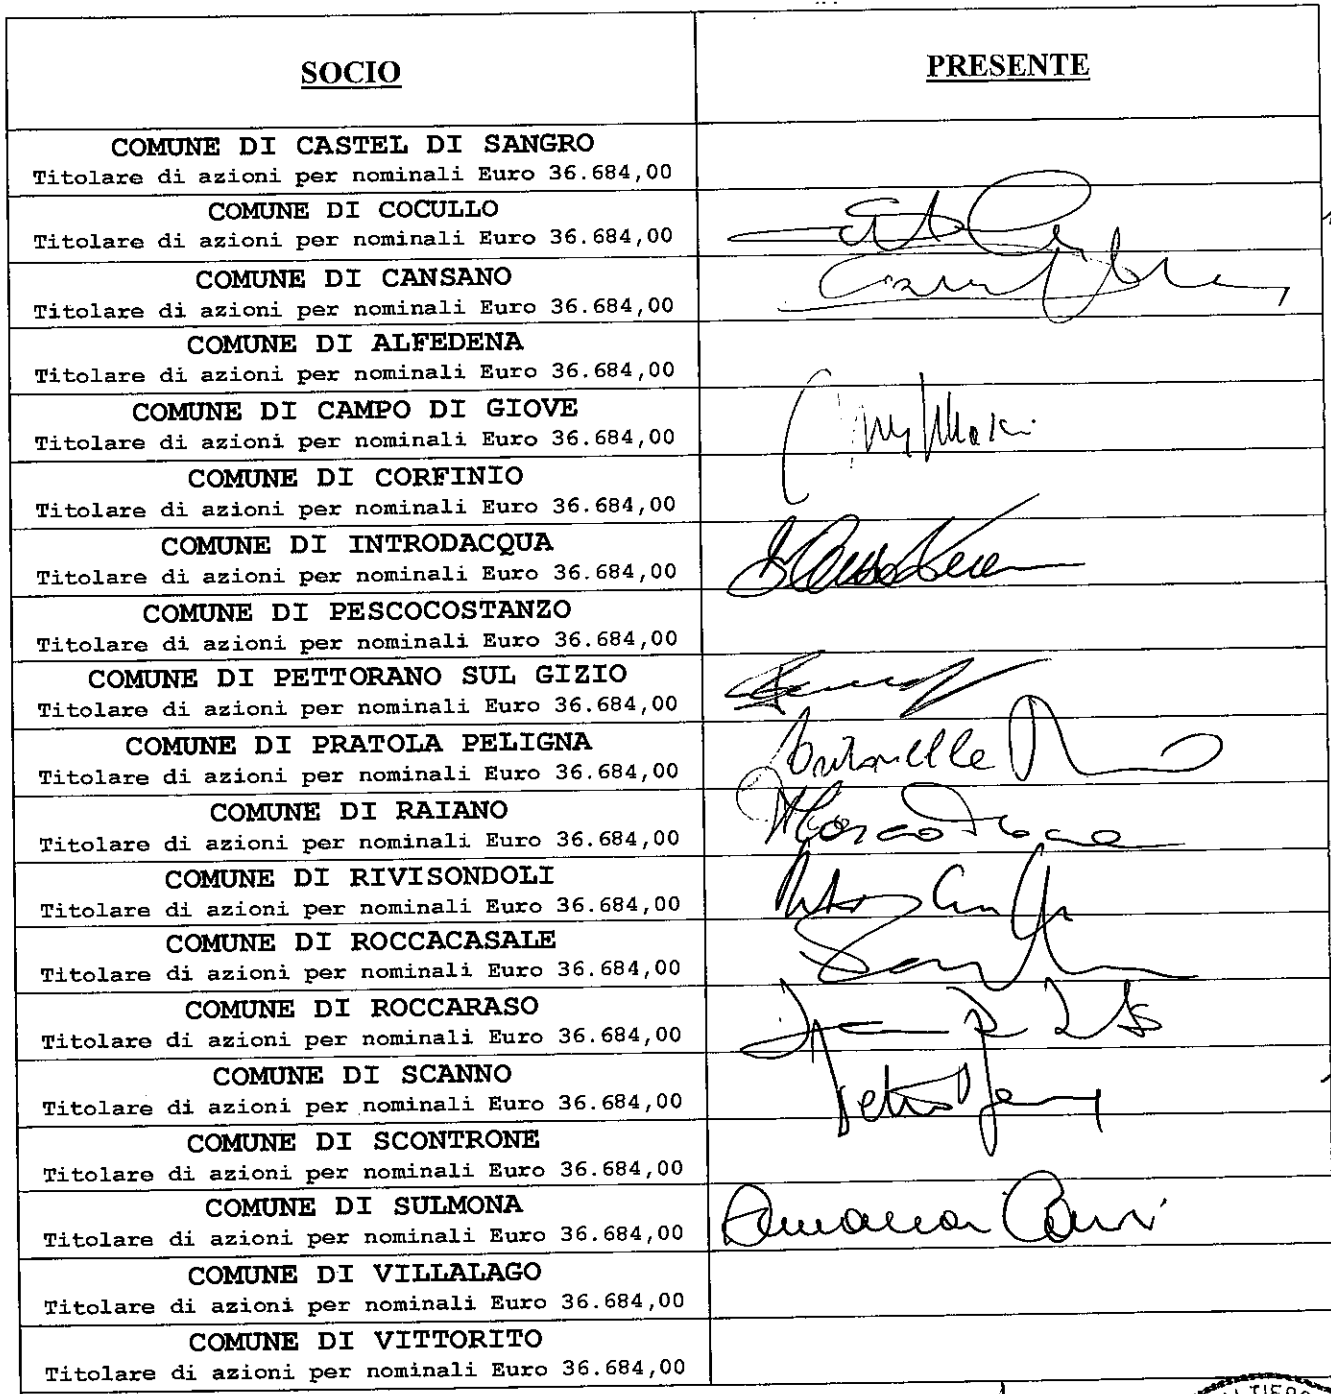 SOCIO
PRESENTE
COMUNE DI CASTEL DI SANGRO
Titolare di azioni per nominali Euro 36.684,00
COMUNE DI COCULLO
Titolare di azioni per nominali Euro 36.684,00
COMUNE DI CANSANO
Titolare di azioni per nominali Euro 36.684,00
COMUNE DI ALFEDENA
Titolare di azioni per nominali Euro 36.684,00
COMUNE DI CAMPO DI GIOVE
Titolare di azioni per nominali Euro 36.684,00
COMUNE DI CORFINIO
Titolare di azioni per nominali Euro 36.684,00
COMUNE DI INTRODACQUA
Titolare di azioni per nominali Euro 36.684,00
COMUNE DI PESCOCOSTANZO
Titolare di azioni per nominali Euro 36.684,00
COMUNE DI PETTORANO SUL GIZIO
Titolare di azioni per nominali Euro 36.684,00
COMUNE DI PRATOLA PELIGNA
Antonella
Titolare di azioni per nominali Euro 36.684,00
COMUNE DI RAIANO
Marco
Titolare di azioni per nominali Euro 36.684,00
COMUNE DI RIVISONDOLI
Titolare di azioni per nominali Euro 36.684,00
COMUNE DI ROCCACASALE
Titolare di azioni per nominali Euro 36.684,00
COMUNE DI ROCCARASO
Titolare di azioni per nominali Euro 36.684,00
COMUNE DI SCANNO
Titolare di azioni per nominali Euro 36.684,00
COMUNE DI SCONTRONE
Titolare di azioni per nominali Euro 36.684,00
COMUNE DI SULMONA
Titolare di azioni per nominali Euro 36.684,00
COMUNE DI VILLALAGO
Titolare di azioni per nominali Euro 36.684,00
COMUNE DI VITTORITO
Titolare di azioni per nominali Euro 36.684,00